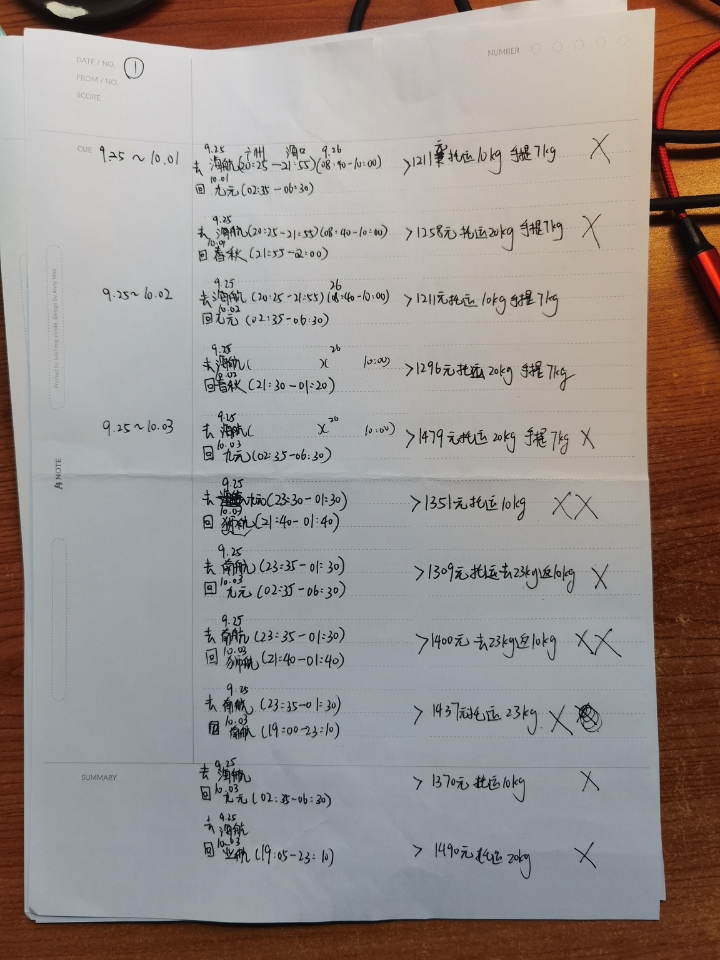 DATE / NO. ①
NUMBER
FROM / NO.
SCORE
CUE
9.25~10.01
9.25 广州 海口 9.26
去 海航(20:25-21:55)(08:40-10:00) >1211元 托运10kg 手提7kg X
10.01
回 九元(02:35-06:30)
9.25
去 海航(20:25-21:55)(08:40-10:00) >1258元 托运20kg 手提7kg X
10.01
回 春秋(21:55-02:00)
9.25~10.02
9.25 26
去 海航(20:25-21:55)(08:40-10:00) >1211元托运10kg 手提7kg
10.02
回 九元(02:35-06:30)
9.25 26
去 海航( )( 10:00) >1296元托运20kg 手提7kg
10.02
回 春秋(21:30-01:20)
9.25~10.03
9.25 26
去 海航( )( 10:00) >1479元托运20kg 手提7kg X
10.03
回 九元(02:35-06:30)
NOTE
9.25
去 九元(23:30-01:30) >1351元托运10kg XX
10.03
回 狮航(21:40-01:40)
9.25
去 南航(23:35-01:30) >1309元托运去23kg返10kg X
10.03
回 九元(02:35-06:30)
9.25
去 南航(23:35-01:30) >1400元 去23kg返10kg XX
10.03
回 狮航(21:40-01:40)
9.25
去 南航(23:35-01:30) >1437元托运23kg X
10.03
回 南航(19:00-23:10)
SUMMARY
9.25
去 海航 >1370元托运10kg X
10.03
回 九元(02:35-06:30)
9.25
去 海航
10.03
回 亚航(19:05-23:10) >1490元托运20kg X